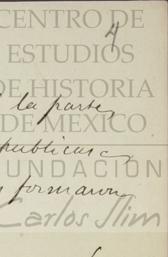 CENTRO DE
4
ESTUDIOS
DE HISTORIA
la parte
DE MEXICO
publicas
FUNDACIÓN
formaron
Carlos Slim